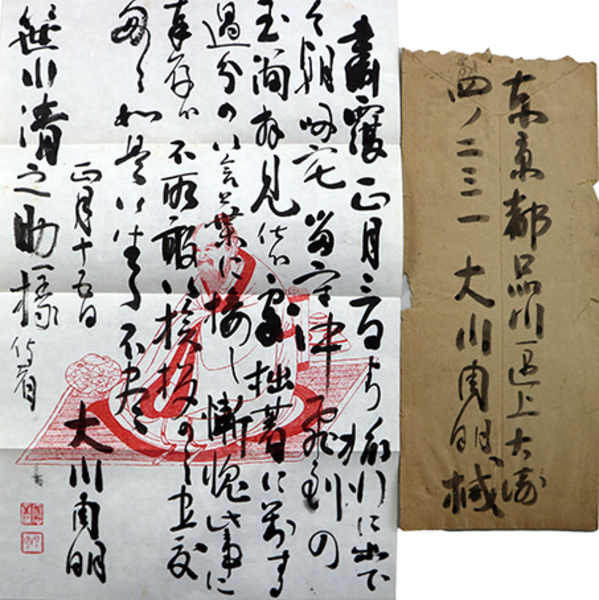 肅覆 正月三日より旅行に出で
今朝帰宅 留守中飛到の
玉海拝見仕候 拙著に対する
過分の御言葉に接し慚愧此事に
奉存候 不取敢御挨拶のみ
如是御坐候 不尽
正月十五日
大川周明
笹川清之助様
東京都品川区上大崎
四ノ二三一 大川周明 緘